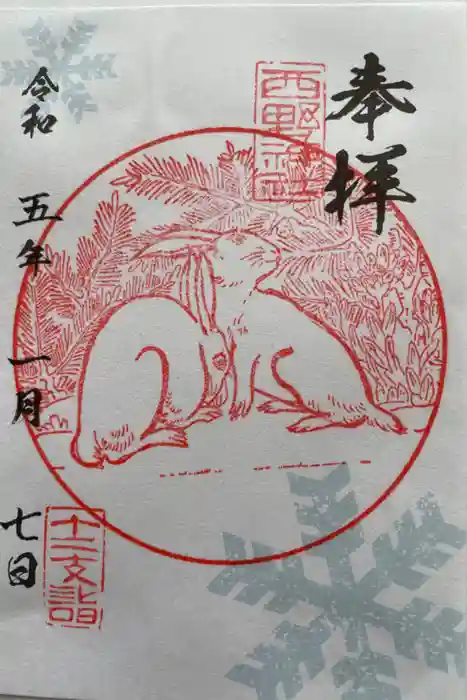 奉拝
西野神社
令和五年一月七日
十二支詣